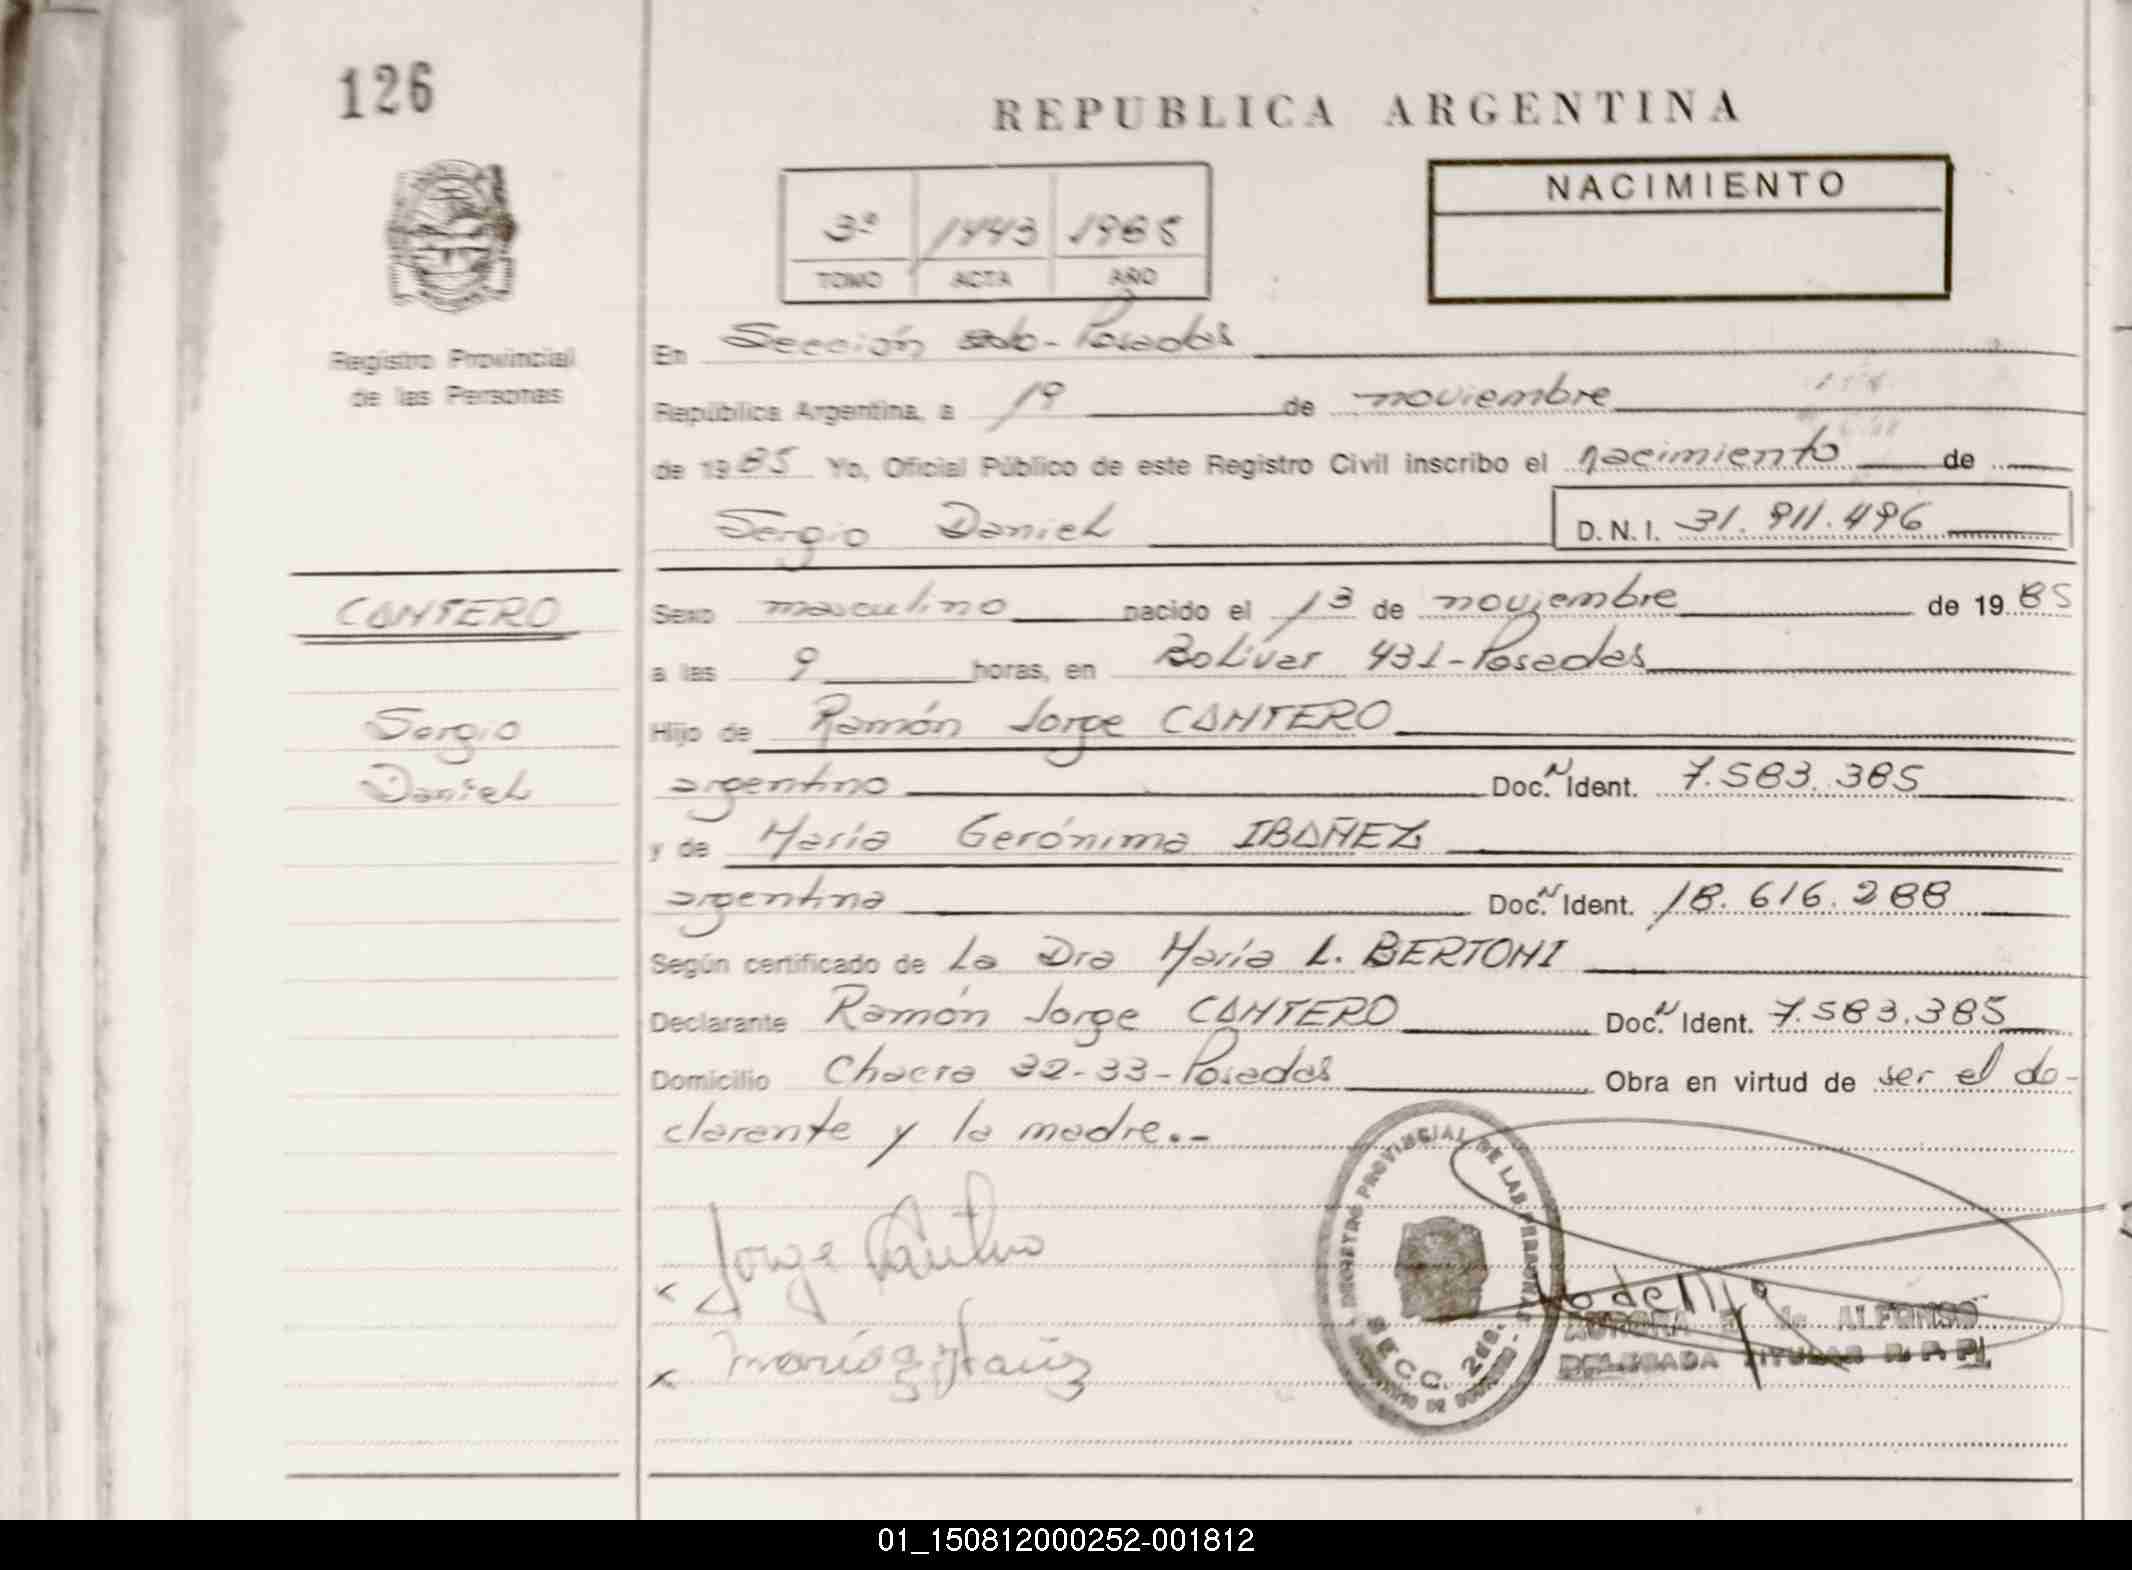 126
REPUBLICA ARGENTINA
3º 1443 1985
TOMO ACTA AÑO
NACIMIENTO
Registro Provincial
de las Personas
En Sección 2da- Posadas
República Argentina, a 19 de noviembre
de 1985 Yo, Oficial Público de este Registro Civil inscribo el nacimiento de
Sergio Daniel D.N.I. 31.911.496
CANTERO
Sergio
Daniel
Sexo masculino nacido el 13 de noviembre de 1985
a las 9 horas, en Bolívar 431-Posadas
Hijo de Ramón Jorge CANTERO
argentino Doc. N Ident. 7.583.385
y de María Gerónima IBAÑEZ
argentina Doc. N Ident. 18.616.288
Según certificado de La Dra María L. BERTONI
Declarante Ramón Jorge CANTERO Doc. N Ident. 7.583.385
Domicilio Chacra 32-33-Posadas Obra en virtud de ser el de-
clarante y la madre.-
x Jorge Cantero
x María G Ibañez
REGISTRO PROVINCIAL DE LAS PERSONAS
SECC. 2da.
AURORA de ALFONSO
DELEGADA TITULAR R. P. P.
01_150812000252-001812